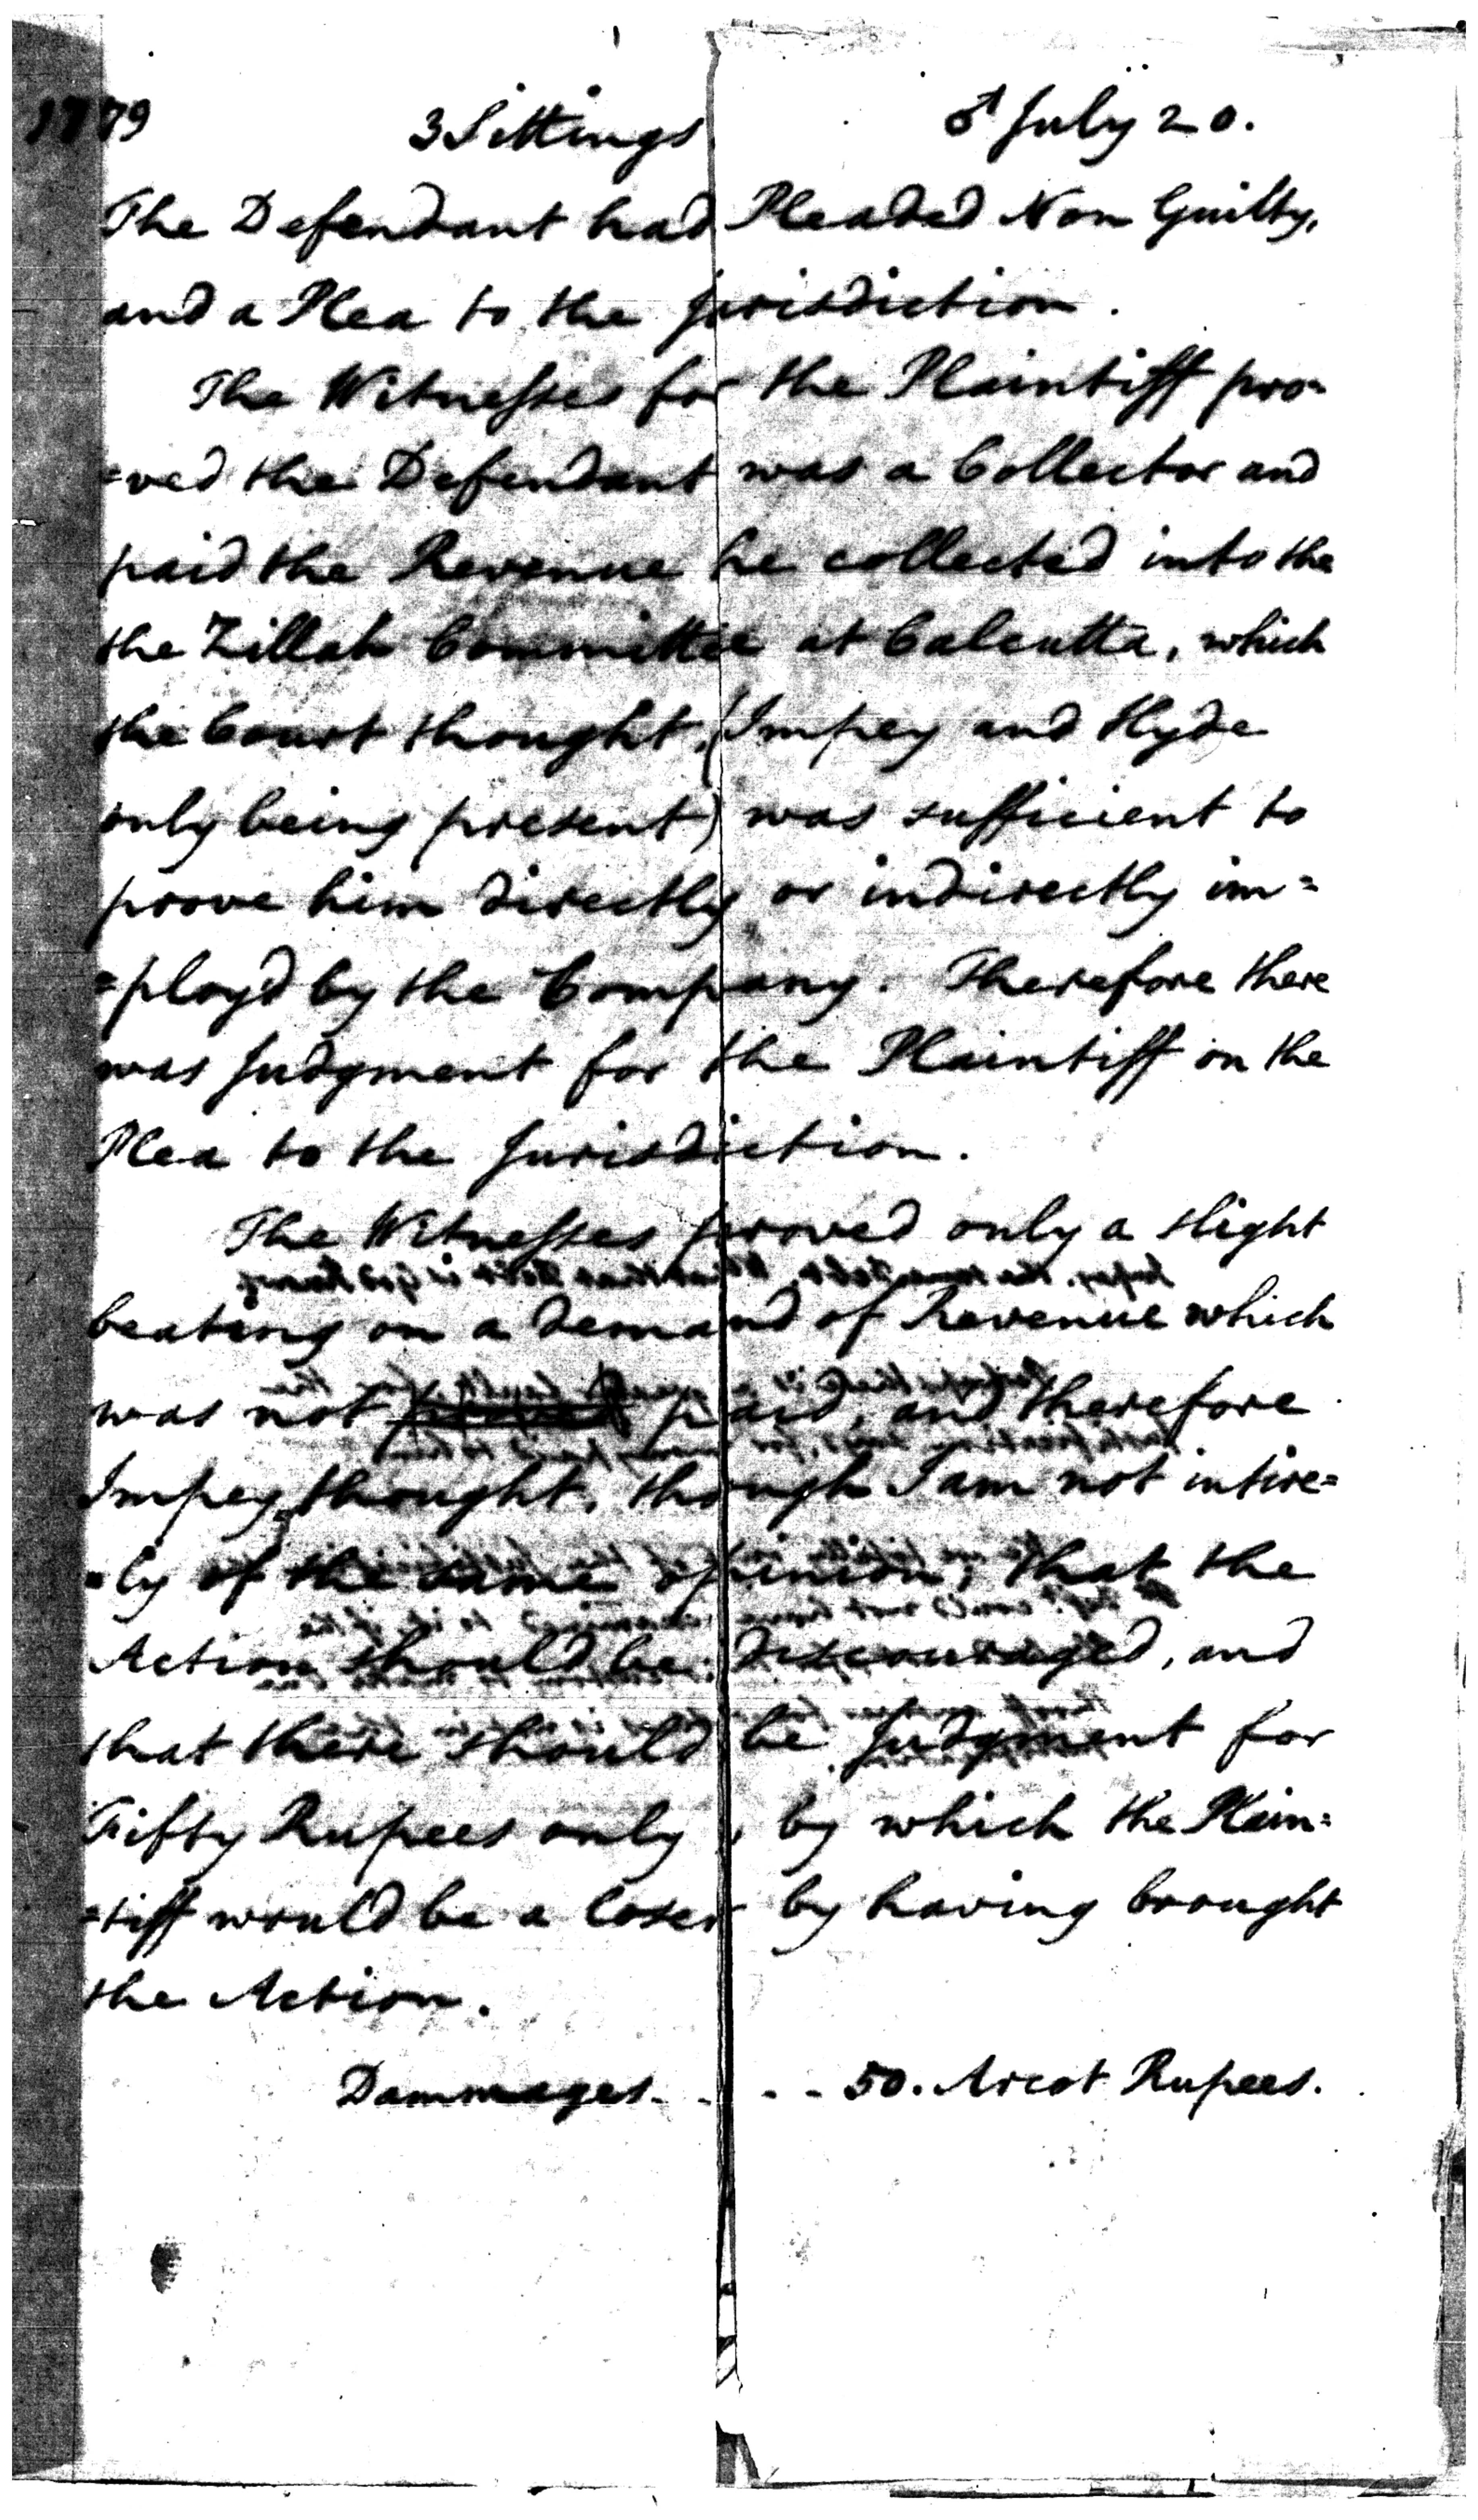 1779 3 Sittings ♂ July 20.
The Defendant had Pleaded Non Guilty,
and a Plea to the Jurisdiction.
The Witnesses for the Plaintiff pro=
=ved the Defendant was a Collector and
paid the Revenue he collected into the
the Zillah Committee at Calcutta, which
the Court thought, (Impey and Hyde
only being present) was sufficient to
prove him directly or indirectly im=
=ployd by the Company. Therefore there
was Judgment for the Plaintiff on the
Plea to the Jurisdiction.
The Witnesses proved only a slight
beating on a demand of Revenue which
was not paid, and therefore
Impey thought, though I am not intire=
=ly of the same opinion, that the
Action should be discouraged, and
that there should be Judgment for
Fifty Rupees only, by which the Plain=
=tiff would be a loser by having brought
the Action.
Dammages - - - - 50. Arcot Rupees.